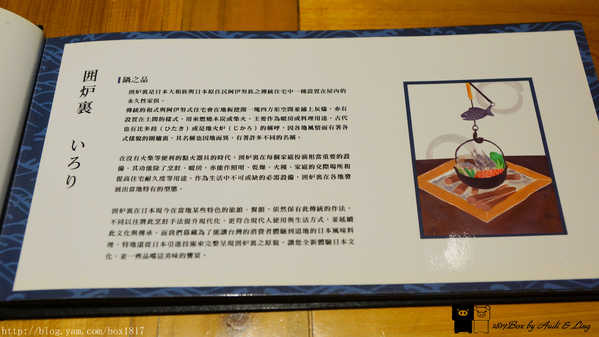 囲炉裏 いろり
鍋之品
囲炉裏是日本大和族與日本原住民阿伊努族之傳統住宅中一種設置在屋內的
永久性家俱。
傳統的和式與阿伊努式住宅會在地板挖開一塊四方形空間並鋪上灰燼,亦有
設置在土間的樣式,用來燃燒木炭或柴火,主要作為暖房或料理用途。古代
也有比多段(ひたき)或是地火炉(じかろ)的稱呼,因各地風情而有著各
式樣貌的囲爐裏,其名稱也因地而異,有著許多不同的名稱。
在沒有火柴等便利的點火器具的時代,囲炉裏在每個家庭扮演相當重要的設
備,其功能除了烹飪、暖房,亦能作照明、乾燥、火種、家庭的交際場所和
提高住宅耐久度等用途。作為生活中不可或缺的必需設備,囲炉裏在各地發
展出當地特有的型態。
囲炉裏在日本現今在當地某些特色的旅館、餐館,依然保有此傳統的作法,
不同以往將此烹飪手法提升現代化、更符合現代人使用與生活方式,並延續
此文化與傳承。而我們幕藏為了能讓台灣的消費者體驗到道地的日本風味料
理,特地遠從日本引進技術來完整呈現囲炉裏之原貌,讓您全新體驗日本文
化,並一同品嚐這美味的饗宴。
1817Box by Audi & Ling
http://blog.yam.com/box1817